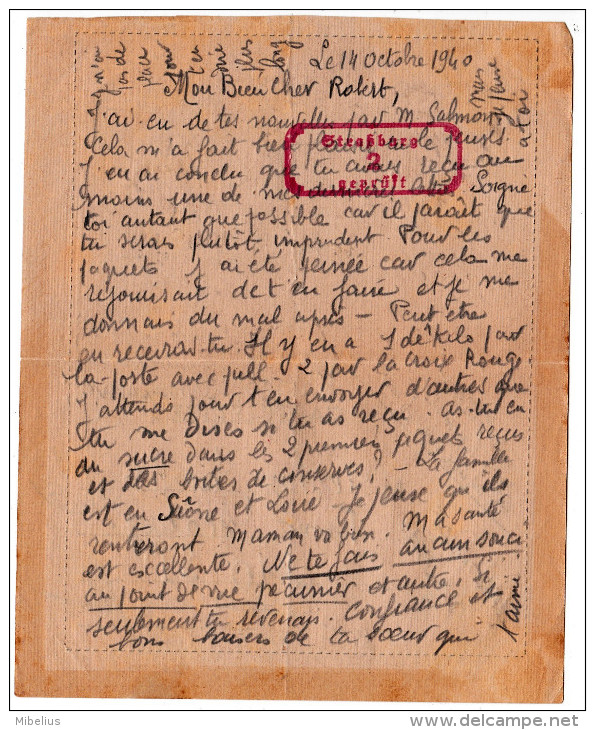 Le 14 Octobre 1940
Mon Bien Cher Robert,
J'ai eu de tes nouvelles par M. Salmon
Cela m'a fait bien plaisir
J'en ai conclu que tu avais reçu au
moins une de mes Soigne
toi autant que possible car il paraît que
tu serais plutôt imprudent Pour les
paquets j'ai été peinée car cela me
réjouissait de t'en faire et je me
donnais du mal après - Peut être
en recevras-tu. Il y en a 1 de 1 Kilo par
la poste avec pull - 2 par la Croix Rouge.
J'attends pour t'en envoyer d'autres que
tu me dises si tu as reçu. As-tu eu
du sucre dans les 2 premiers paquets reçus
et des boîtes de conserves? - La famille
est en Saône et Loire Je pense qu'ils
rentreront Maman va bien. Ma santé
est excellente. Ne te fais aucun souci
au point de vue pécunier et autre. Si
seulement tu revenais. Confiance et
bons baisers de ta soeur qui
t'aime
pas de
place
pour
t'en
dire
plus
long
mais
je pense
à toi
Straßburg
2
geprüft
Mibelius
www.delcampe.net